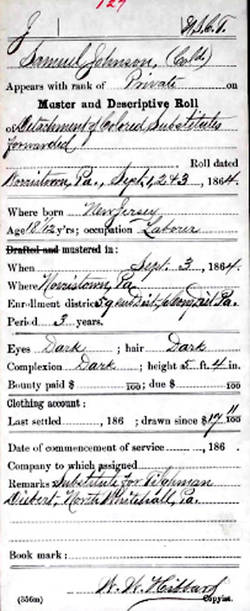 127
J U.S.C.T.
Samuel Johnson, (Cold.)
Appears with rank of Private on
Muster and Descriptive Roll
of Detachment of Colored Substitutes
forwarded
Roll dated
Norristown, Pa., Sept. 1, 2 & 3, 1864.
Where born New Jersey
Age 18 1/12 y'rs; occupation Laborer
Drafted and mustered in:
When Sept. 3, 1864.
Where Norristown, Pa.
Enrollment district Pa.
Period 3 years.
Eyes Dark; hair Dark
Complexion Dark; height 5 ft. 4 in.
Bounty paid $ 100; due $ 100
Clothing account:
Last settled, 186; drawn since $ 17 11/100
Date of commencement of service, 186.
Company to which assigned
Remarks: Substitute for Tilghman
Diebert, North Whitehall, Pa.
Book mark:
W. W. Hibbard
(356m) Copyist.